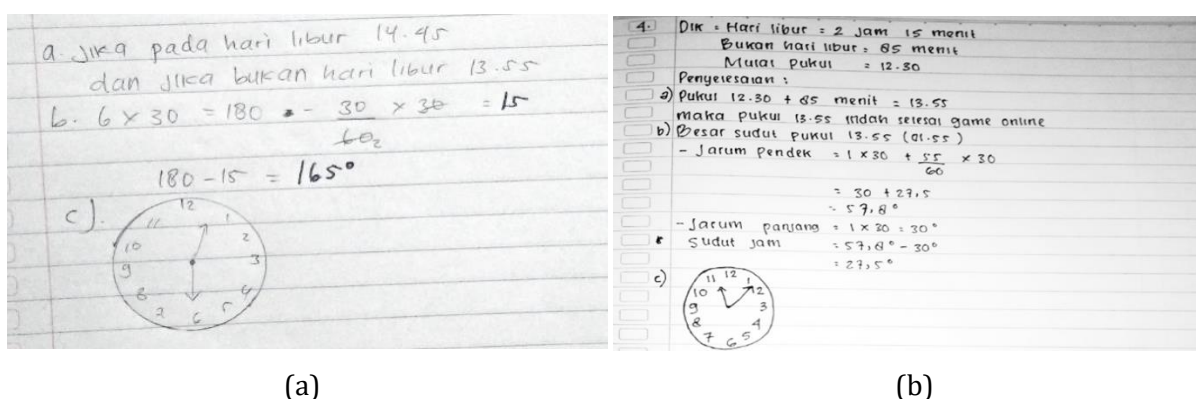 a. Jika pada hari libur 14.45
dan jika bukan hari libur 13.55
b. 6 x 30 = 180 - 30/60 x 30 = 15
2
180 - 15 = 165°
c).
12
11 1
10 2
9 3
8 4
7 6 5
(a)
4. Dik : Hari libur = 2 Jam 15 menit
Bukan hari libur = 85 menit
Mulai Pukul = 12.30
Penyelesaian :
a) Pukul 12.30 + 85 menit = 13.55
maka pukul 13.55 indah selesai game online
b) Besar sudut pukul 13.55 (01.55)
- Jarum Pendek = 1 x 30 + 55/60 x 30
= 30 + 27,5
= 57,8°
- Jarum panjang = 1 x 30 = 30°
Sudut jam = 57,8° - 30°
= 27,5°
c)
11 12 1
10 12
9 3
8 4
7 6 5
(b)